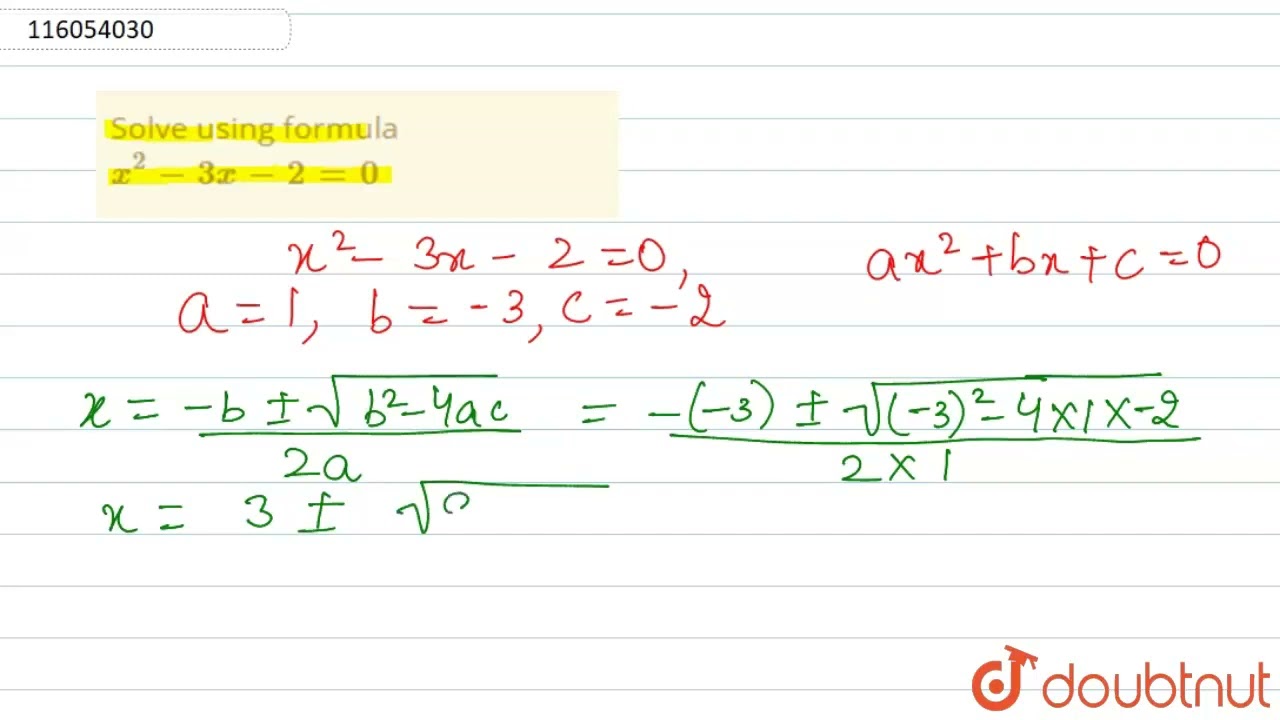 116054030
Solve using formula
x² − 3x − 2 = 0
x² - 3x - 2 = 0, ax² + bx + c = 0
a = 1, b = -3, c = -2
x = -b ± √b² - 4ac / 2a = -(-3) ± √(-3)² - 4 × 1 × -2 / 2 × 1
x = 3 ± √
doubtnut